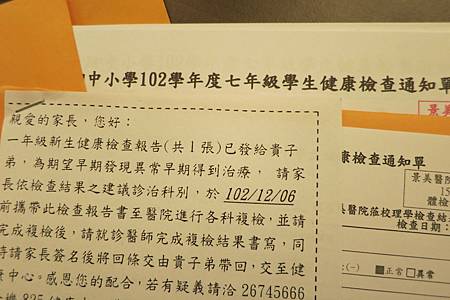 中小學102學年度七年級學生健康檢查通知單
景美
親愛的家長，您好：
一年級新生健康檢查報告(共1張)已發給貴子
弟，為期望早期發現異常早期得到治療， 請家
長依檢查結果之建議診治科別，於 102/12/06
前攜帶此檢查報告書至醫院進行各科複檢，並請
完成複檢後，請就診醫師完成複檢結果書寫，同
時請家長簽名後將回條交由貴子弟帶回，交至健
康中心。感恩您的配合，若有疑義請洽 26745666
康檢查通知單
景美醫院
15
體檢
美醫院蒞校理學檢查結
檢查日期：
(-) ■正常 □異常